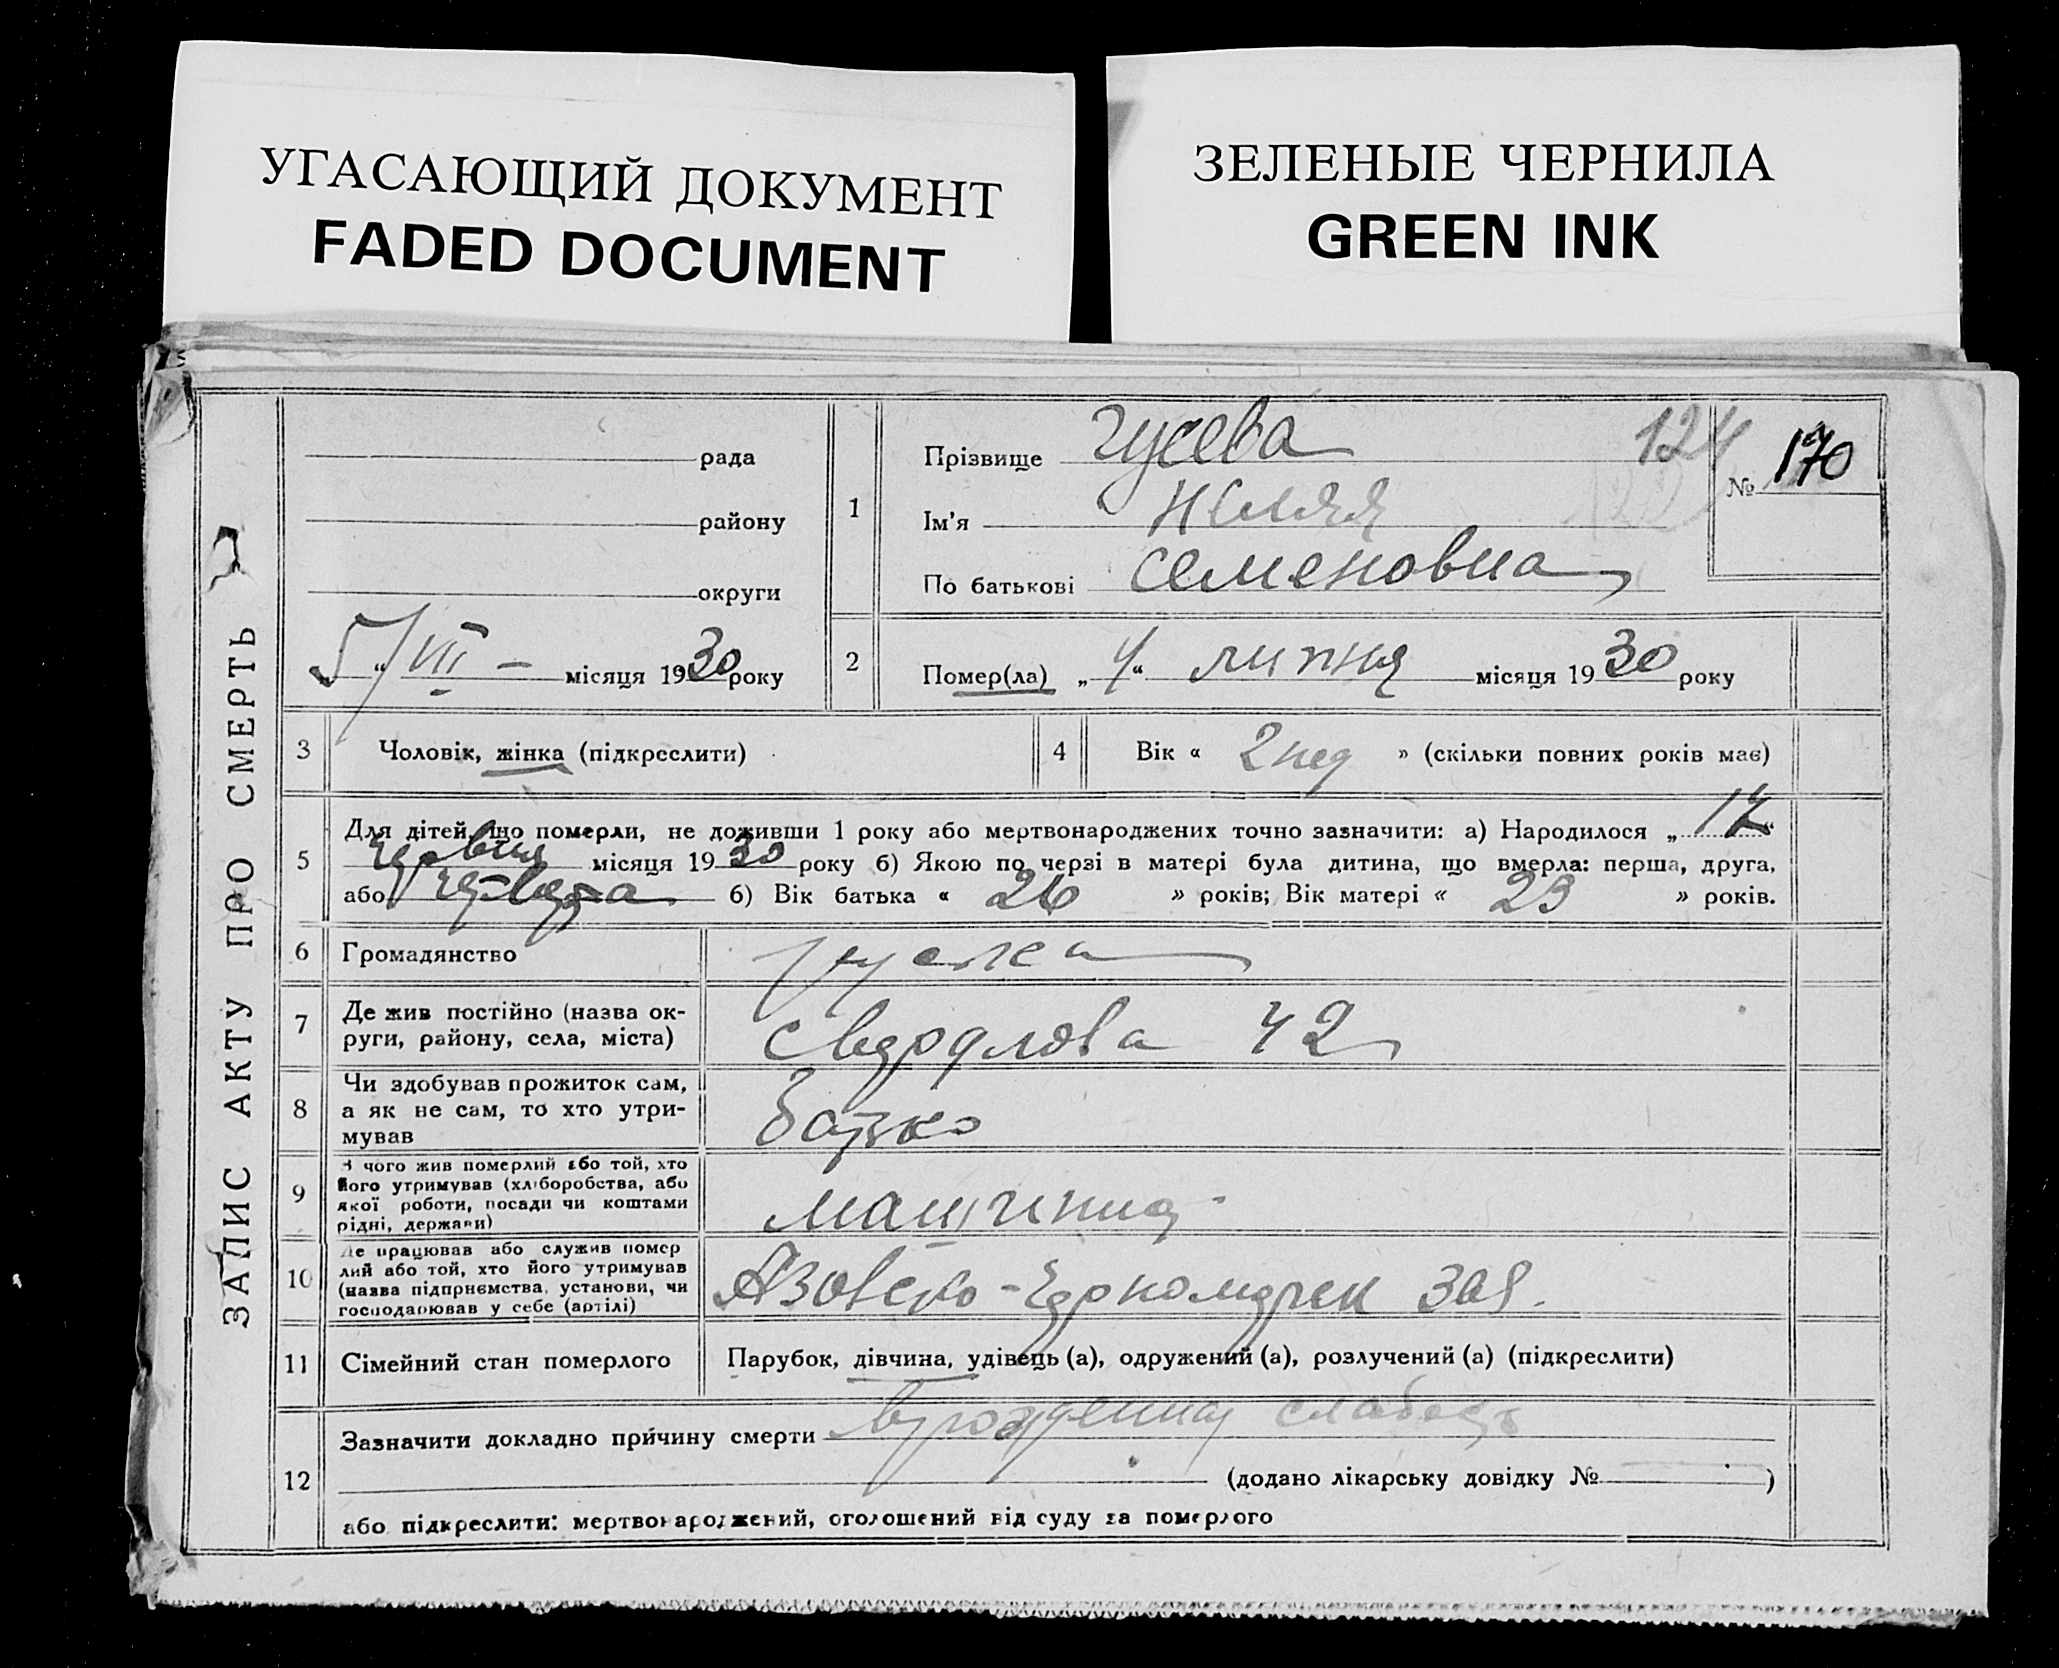 УГАСАЮЩИЙ ДОКУМЕНТ
FADED DOCUMENT
ЗЕЛЕНЫЕ ЧЕРНИЛА
GREEN INK
ЗАПИС АКТУ ПРО СМЕРТЬ
рада
району
округи
5/VII – місяця 1930 року
1
Прізвище Гусева
Ім'я Нелля
По батькові Семеновна
124
№ 170
2
Помер(ла) „4“ липня місяця 1930 року
3 Чоловік, жінка (підкреслити)
4 Вік « 2 нед » (скільки повних років має)
5 Для дітей, що померли, не доживши 1 року або мертвонароджених точно зазначити: а) Народилося „17“
червня місяця 1930 року б) Якою по черзі в матері була дитина, що вмерла: перша, друга,
або б) Вік батька « 26 » років; Вік матері « 23 » років.
6 Громадянство руська
7 Де жив постійно (назва ок-
руги, району, села, міста) Свердлова 42
8 Чи здобував прожиток сам,
а як не сам, то хто утри-
мував батько
9 З чого жив померлий або той, хто
його утримував (хліборобства, або
якої роботи, посади чи коштами
рідні, держави)
10 Де працював або служив помер
лий або той, хто його утримував
(назва підприємства, установи, чи
господарював у себе (артілі) Азовсько-Черноморск зав.
11 Сімейний стан померлого Парубок, дівчина, удівець (а), одружений (а), розлучений (а) (підкреслити)
12 Зазначити докладно причину смерти врожденная слабость
(додано лікарську довідку № )
або підкреслити: мертвонароджений, оголошений від суду за померлого